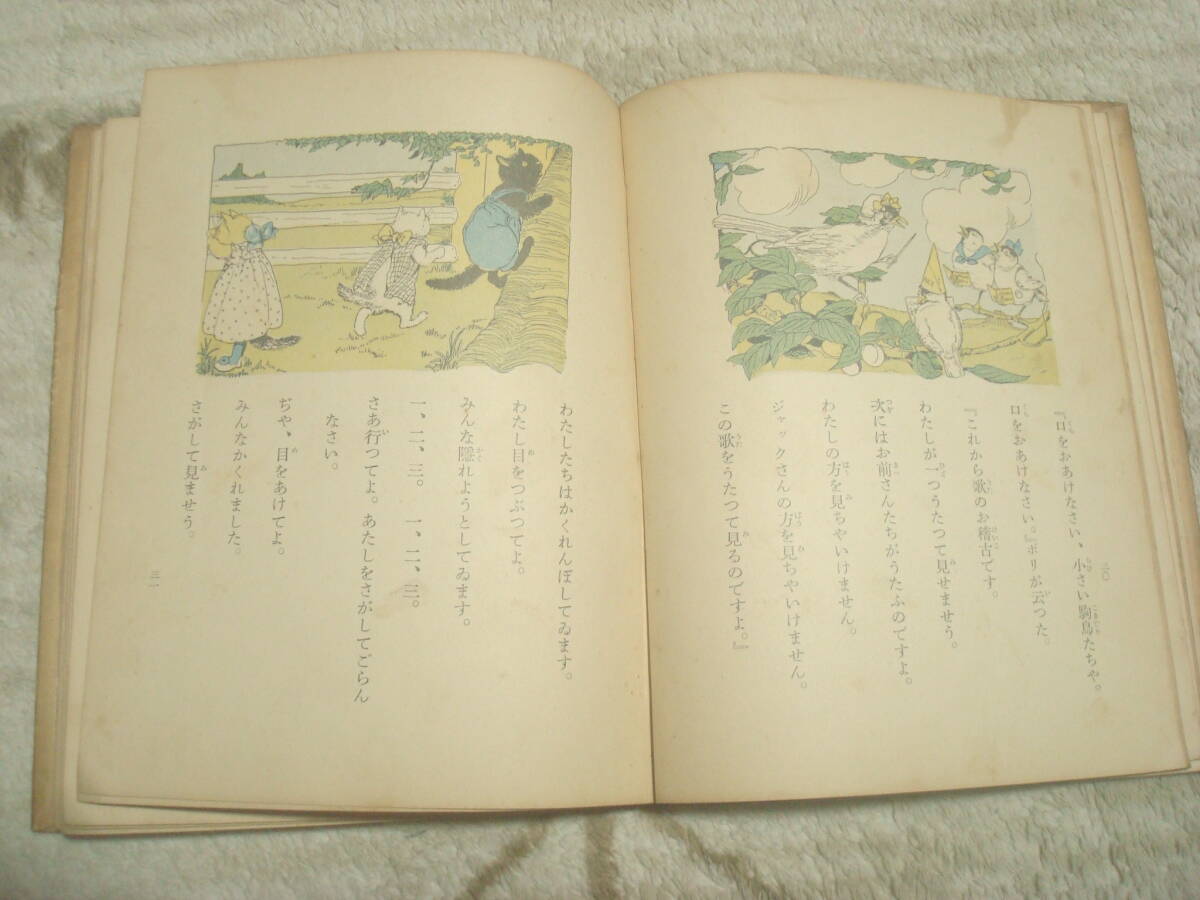 『口をおあけなさい、小さい駒鳥たちや。
口をおあけなさい。』ポリが云つた。
『これから歌のお稽古です。
わたしが一つうたつて見せませう。
次にはお前さんたちがうたふのですよ。
わたしの方を見ちやいけません。
ジャックさんの方を見ちやいけません。
この歌をうたつて見るのですよ。』
三〇
わたしたちはかくれんぼしてゐます。
わたし目をつぶつてよ。
みんな隠れようとしてゐます。
一、二、三。 一、二、三。
さあ行つてよ。あたしをさがしてごらん
なさい。
ぢや、目をあけてよ。
みんなかくれました。
さがして見ませう。
三一